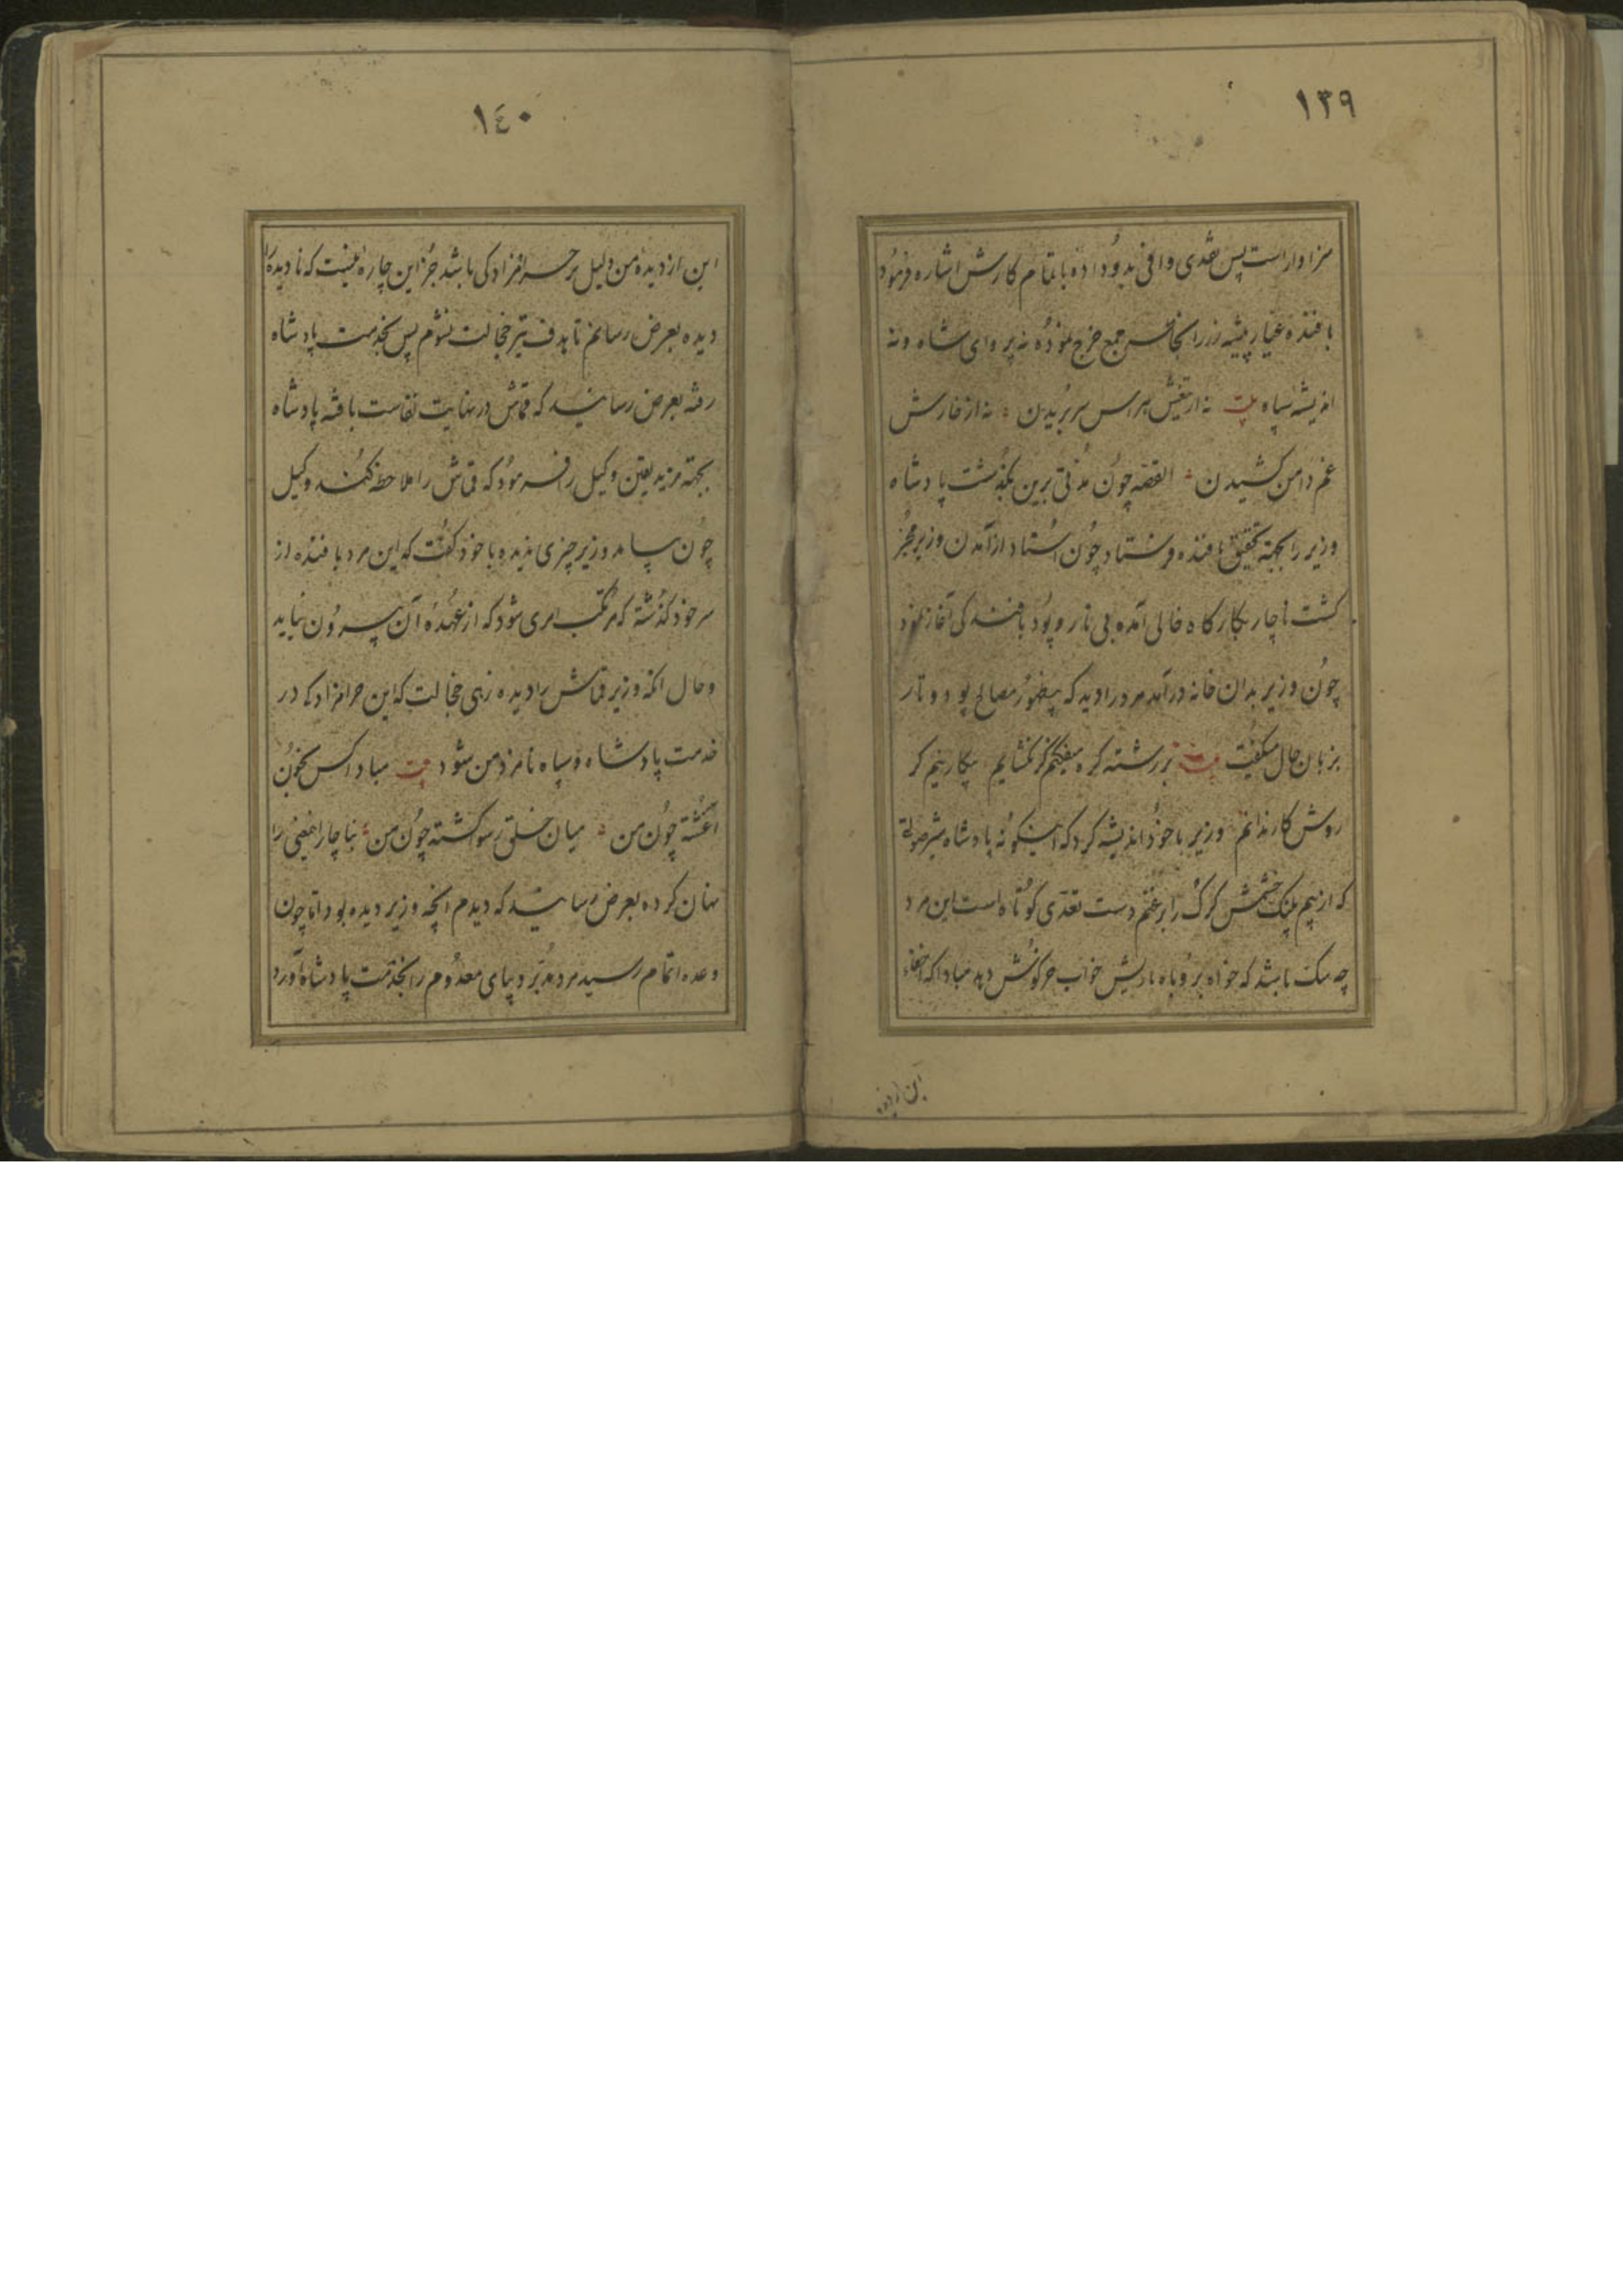 ١٣٩
سزاوار است پس نقدی وافی بدو داده باتمام کارش اشاره فرمود
بافنده عیار پیشه زر را بجا جمع خرج نموده نه پروای شاه و نه
اندیشه سپاه بیت نه از تیغش هراس سر بریدن نه از خارش
غم دامن کشیدن القصه چون مدتی برین بگذشت پادشاه
وزیر را بجهته تحقیق بافنده فرستاد چون استاد از آمدن وزیر مخبر
کشت ناچار بکارکاه خالی آمده بی تار و پود بافندکی آغاز نمود
چون وزیر بدان خانه درآمد مرد را دید که بیحضور مصالح پود و تار
بزبان حال میکفت بیت بر رشته کره میفکنم کر نکشایم بیکار نیم کر
روش کار ندانم وزیر با خود اندیشه کرد که اینکونه پادشاه شیر صولة
که از بیم پلنک خشمش کرک را بر غنم دست تعدی کوتاه است این مرد
چه سک باشد که خواهد بروباه بازیش خواب خرکوش دهد مبادا که اخفاء
این از دیده
١٤٠
این از دیدهٔ من دلیل بر حرامزادکی باشد جز این چاره نیست که نادیده را
دیده بعرض رسانم تا هدف تیر خجالت نشوم پس بخدمت پادشاه
رفته بعرض رسانید که قماش در نهایت نفاست بافته پادشاه
بجهته مزید یقین وکیل را فرمود که قماش را ملاحظه کند وکیل
چون بیامد وزیر چیزی ندیده با خود کفت که این مرد بافنده از
سر خود کذشته که مرتکب امری شود که از عهدهٔ آن بیرون نیاید
و حال انکه وزیر قماش را دیده زهی خجالت که این حرامزادکی در
خدمت پادشاه و سپاه نامزد من شود بیت مبادا کس بخون
اغشته چون من میان خلق رسوا کشته چون من بناچار اینمعنی را
پنهان کرده بعرض رسانید که دیدم انچه وزیر دیده بود اما چون
وعده اتمام رسید مرد مدبر دیبای معدوم را بخدمت پادشاه آورد